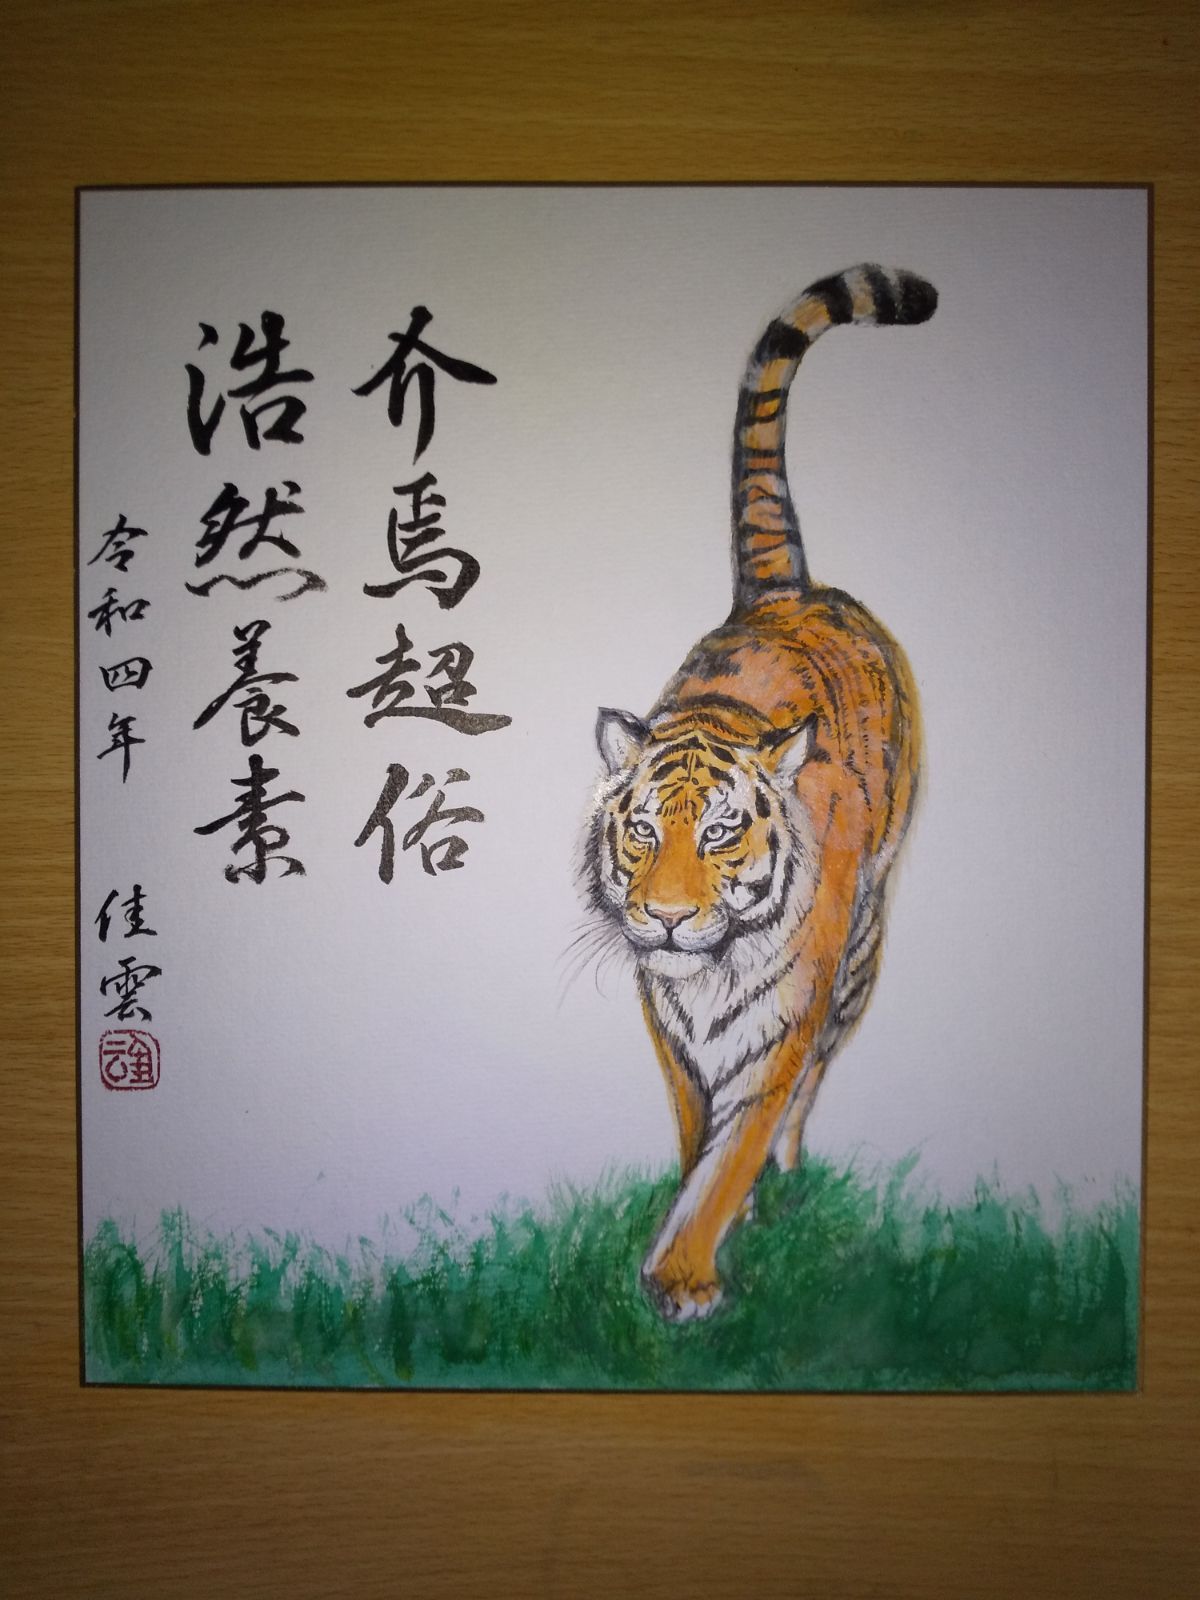 介焉超俗
浩然養素
令和四年 佳雲